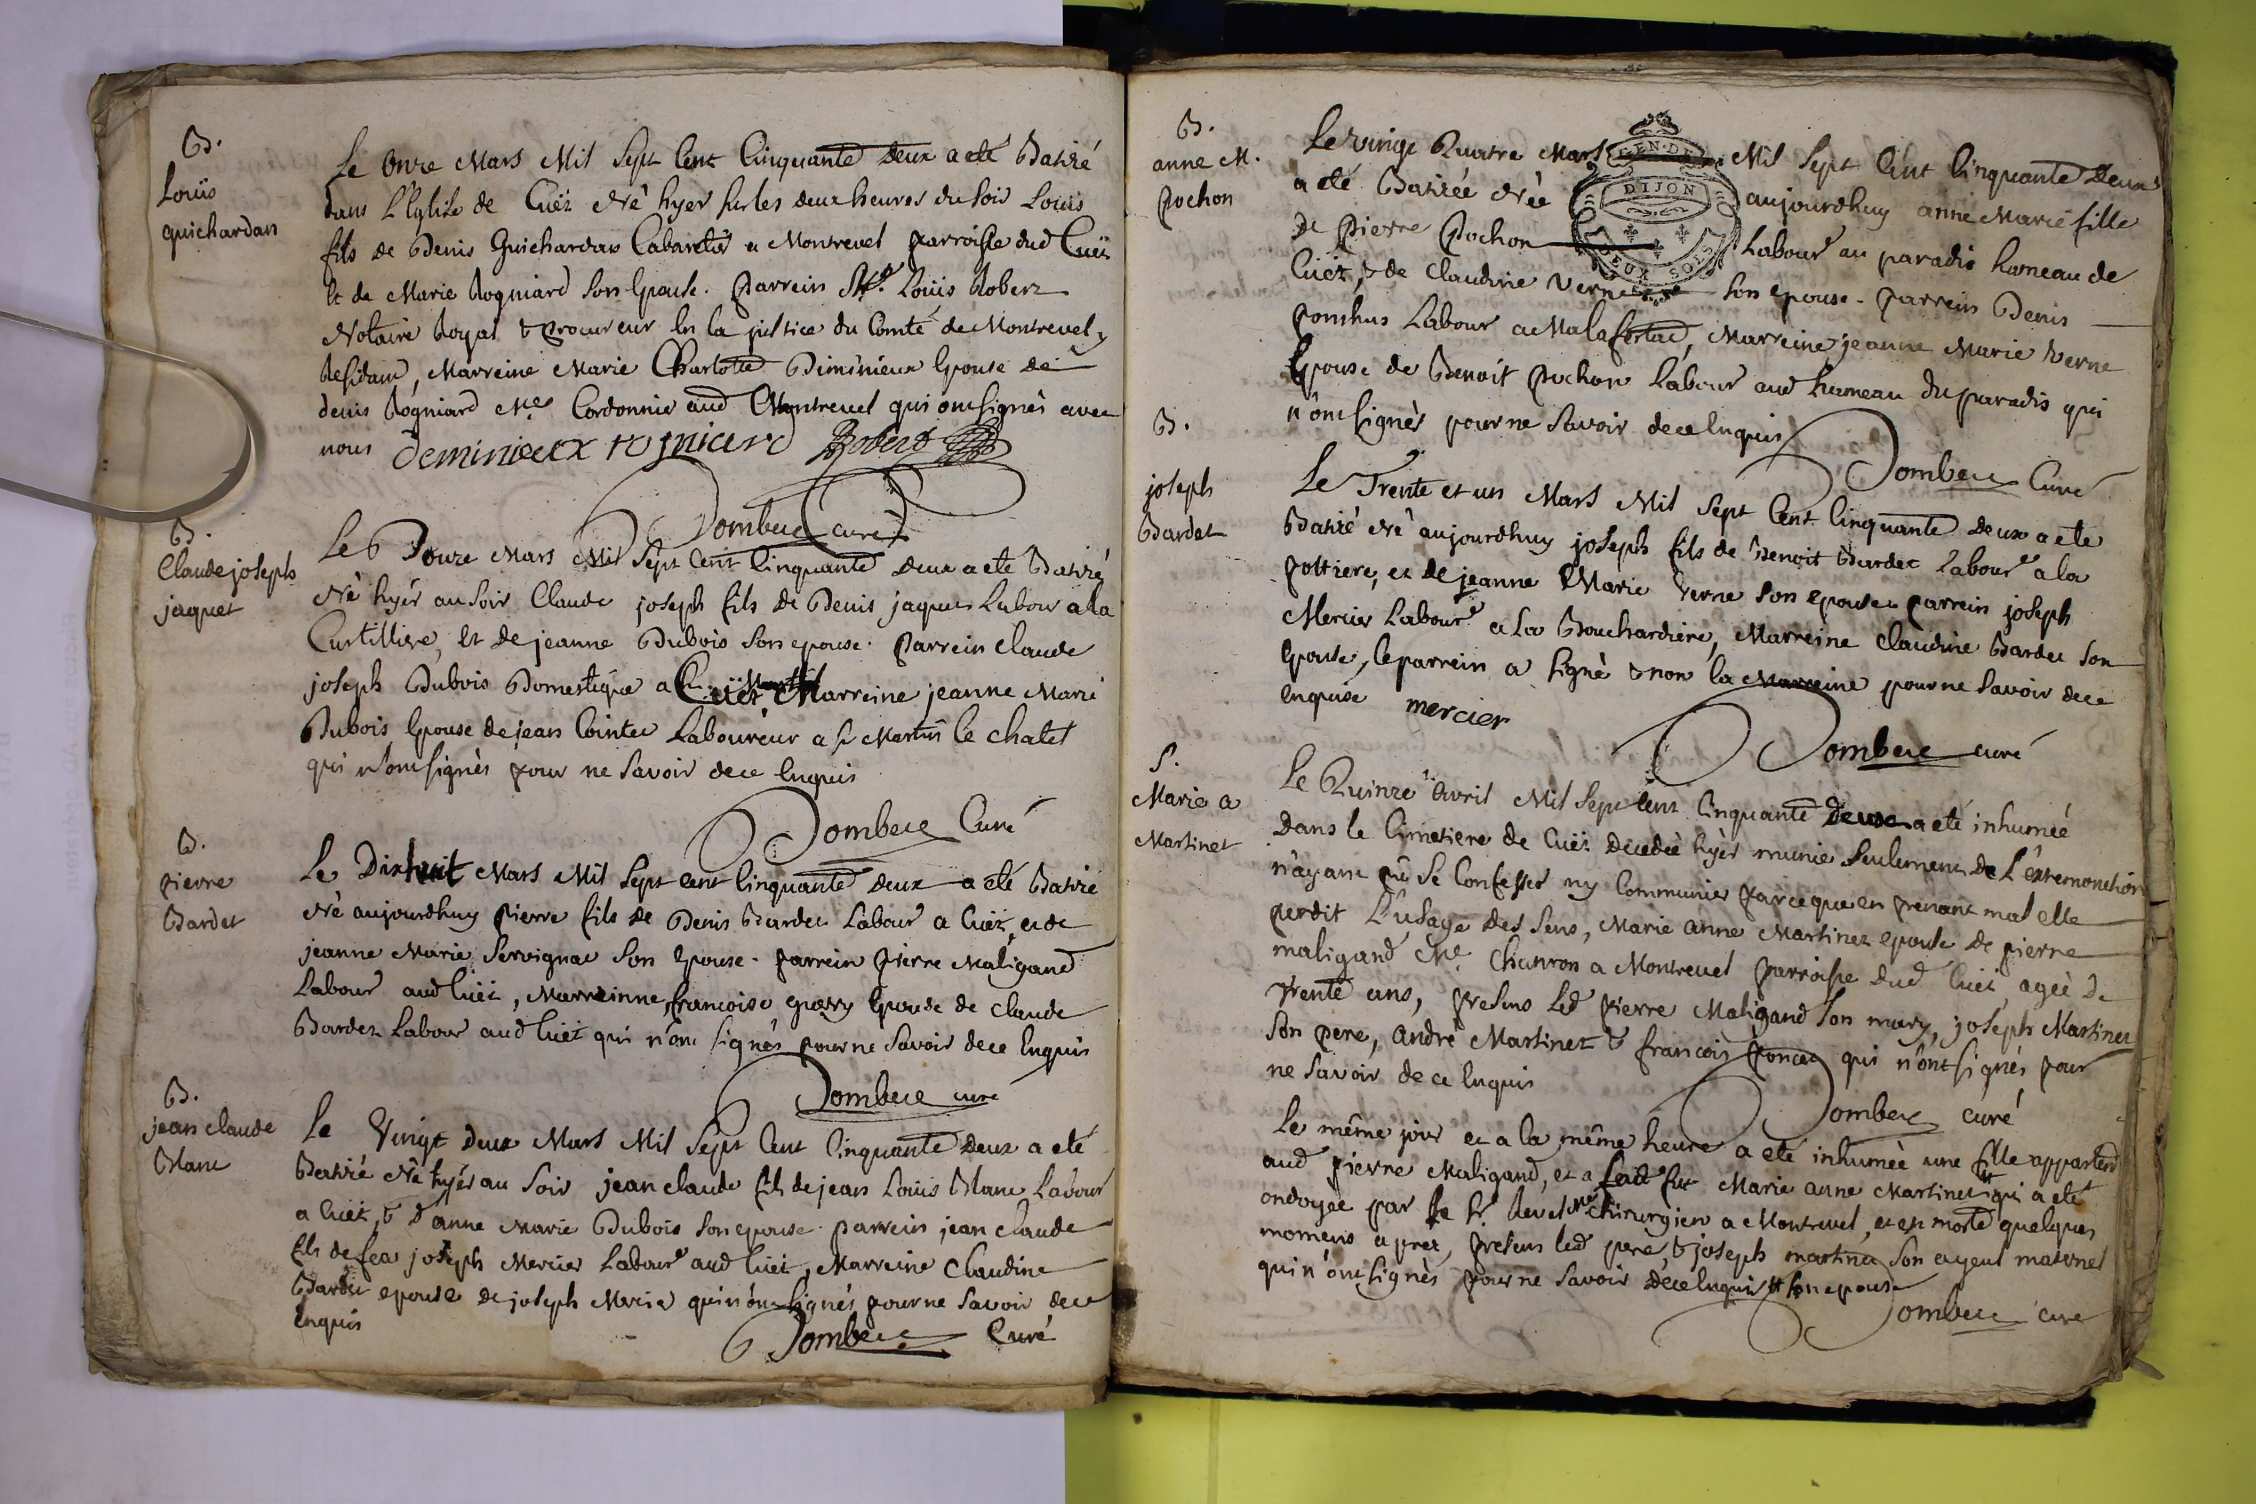 B.
Louis
guichardan
Le Onze Mars Mil Sept Cent Cinquante Deux a eté Batizé
dans L'Eglise de Cuët Né hyer sur les deux heures du soir Louis
fils de Denis Guichardan Cabaretier a Montrevel parroisse dud Cuët
et de Marie Rogniard son Epouse. parrein Louis Robert
Notaire Royal & procureur En la justice du Comté de Montrevel y
Residant, Marreine Marie Charlotte Diminieux Epouse de
denis Rogniard Me Cordonnie aud Montrevel qui ont signés avec
nous deminieux rogniard Robert
Dombece curé
B.
Claude joseph
jaquet
Le Douze Mars Mil Sept Cent Cinquante Deux a eté Batizé
Né hyér au soir Claude joseph fils de Denis jaquet Labour a la
Curtillire, Et de jeanne Dubois son epouse. parrein claude
joseph Dubois Domestique a Cuët Marreine jeanne Marie
Dubois Epouse de jean Cointet Laboureur a st Martin le chatel
qui n'ont signés pour ne savoir de ce Enquis
Dombece Curé
B.
pierre
Bardet
Le Dixhuit Mars Mil Sept Cent Cinquante deux a eté Batizé
Né aujourdhuy Pierre fils de Denis Bardet Labour a Cuët, et de
jeanne Marie Servignat son Epouse. parrein Pierre Maligand
Labour aud Cuët, Marreinne francoise Epouse de Claude
Bardet Labour aud Cuët qui n'ont signés pour ne savoir de ce Enquis
Dombece curé
B.
jean claude
Blanc
Le Vingt deux Mars Mil Sept Cent Cinquante Deux a eté
Batizé Né hyér au Soir jean claude fils de jean Louis Blanc Labour
a Cuët, & d'anne Marie Dubois son epouse. parrein jean claude
fils de feu joseph Mercier Labour aud Cuët, Marreine Claudine
Bardet epouse de joseph Mercie qui n'ont signés pour ne savoir de ce
enquis
Dombece Curé
B.
anne M.
Pochon
Le vingt Quatre Mars Mil Sept Cent Cinquante Deux
GEN. DE
DIJON
DEUX SOLS
a eté Batizée Née aujourdhuy anne Marie fille
de Pierre Pochon Labour au paradis hameau de
Cuët, & de Claudine Verne son epouse. parrein Denis
Ponthus Labour a Malafertad, Marreine jeanne Marie Verne
Epouse de Benoit Pochon Labour aud hameau du paradis qui
n'ont signés pour ne savoir de ce Enquis
Dombece Curé
B.
joseph
Bardet
Le Trente et un Mars Mil Sept Cent Cinquante deux a eté
Batizé Né aujourdhuy joseph fils de Benoit Bardet Labour a la
pottiere, et de jeanne Marie Verne son epouse parrein joseph
Mercier Labour a La Bouchardiere, Marreine Claudine Bardet son
epouse, le parrein a signé & non la Marreine pour ne savoir de ce
enquise mercier
Dombece curé
S.
Marie a
Martinet
Le Quinze Avril Mil Sept Cent Cinquante Deux a eté inhumée
Dans le Cimetiere de Cuët Decedée hyèr munie seulement de L'extremonction
n'ayant pû se Confesser ny Communier parceque en prenant mal elle
perdit L'usage des sens, Marie anne Martinet epouse de pierre
maligand Me Charron a Montrevel parroisse dud Cuët, agée de
trente ans, presens led pierre Maligand son mary, joseph Martinet
son pere, andré Martinet & francois Poncet qui n'ont signés pour
ne savoir de ce Enquis
Dombece curé
Le même jour et a la même heure a eté inhumée une fille appartent
aud pierre Maligand, et a feüe Marie anne Martinet # qui a eté
ondoyee par le sr chirurgien a Montrevel, et est morte quelques
momens apres, presens led pere, & joseph martinet son ayeul maternel
qui n'ont signés pour ne savoir de ce enquis # son epouse
Dombece curé